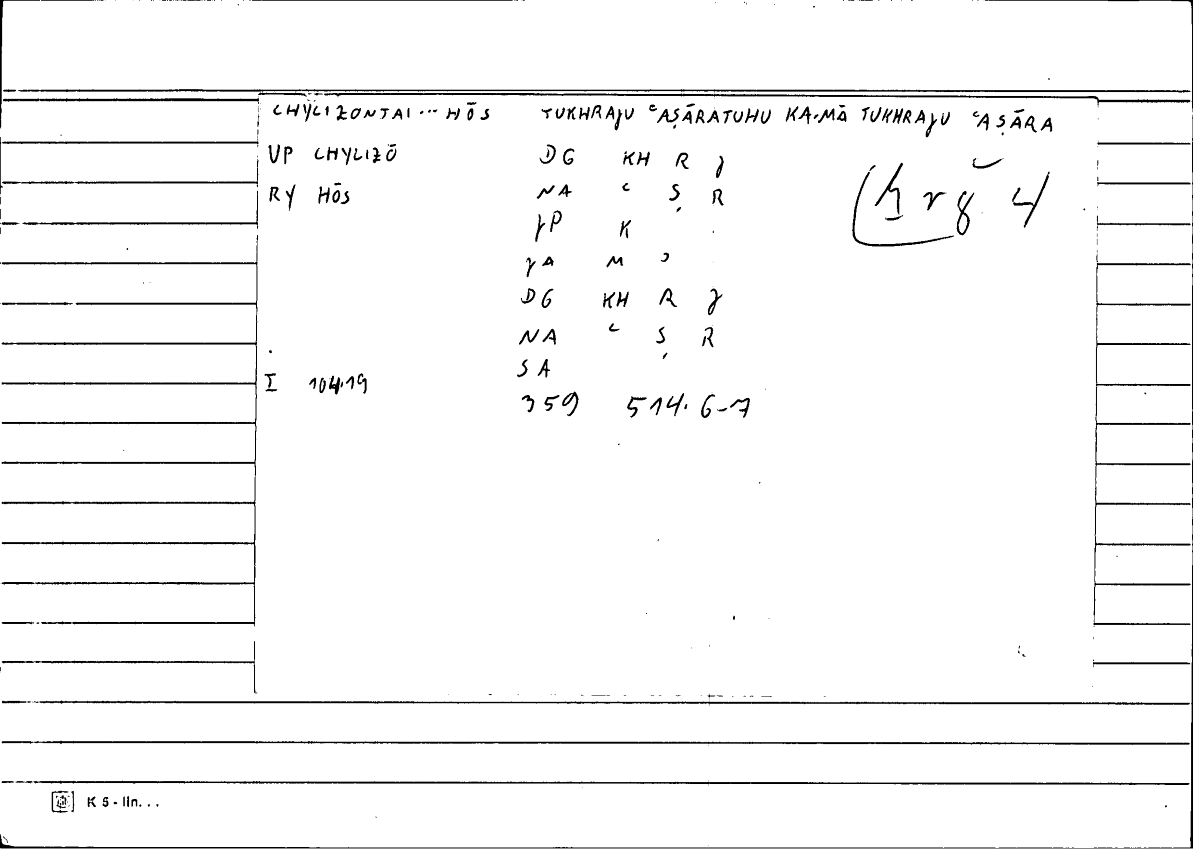 CHYLIZONTAI ... HŌS TUKHRAJU ʿAṢĀRATUHU KA-MĀ TUKHRAJU ʿAṢĀRA
VP CHYLIZŌ DG KH R J
RY HŌS NA ʿ Ṣ R
JP K
JA M ʾ
DG KH R J
NA ʿ Ṣ R
SA
I 104.19
359 514.6-7
ḫrǧ 4
K 5 - lin. . .